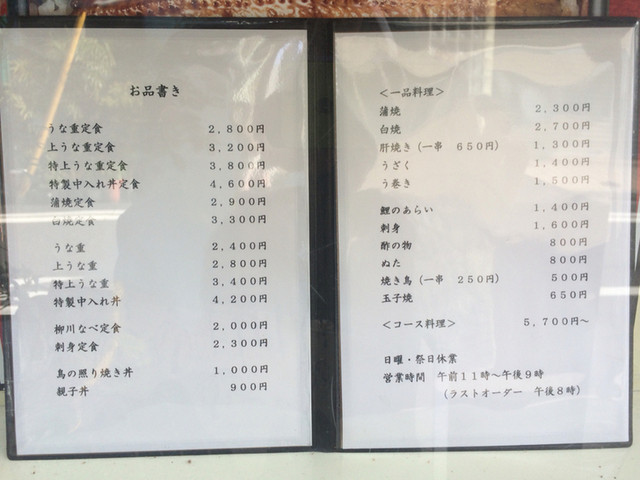 お品書き
うな重定食　２,８００円
上うな重定食　３,２００円
特上うな重定食　３,８００円
特製中入れ丼定食　４,６００円
蒲焼定食　２,９００円
白焼定食　３,３００円
うな重　２,４００円
上うな重　２,８００円
特上うな重　３,４００円
特製中入れ丼　４,２００円
柳川なべ定食　２,０００円
刺身定食　２,３００円
鳥の照り焼き丼　１,０００円
親子丼　９００円
＜一品料理＞
蒲焼　２,３００円
白焼　２,７００円
肝焼き（一串　６５０円）　１,３００円
うざく　１,４００円
う巻き　１,５００円
鯉のあらい　１,４００円
刺身　１,６００円
酢の物　８００円
ぬた　８００円
焼き鳥（一串　２５０円）　５００円
玉子焼　６５０円
＜コース料理＞　５,７００円～
日曜・祭日休業
営業時間　午前１１時～午後９時
（ラストオーダー　午後８時）